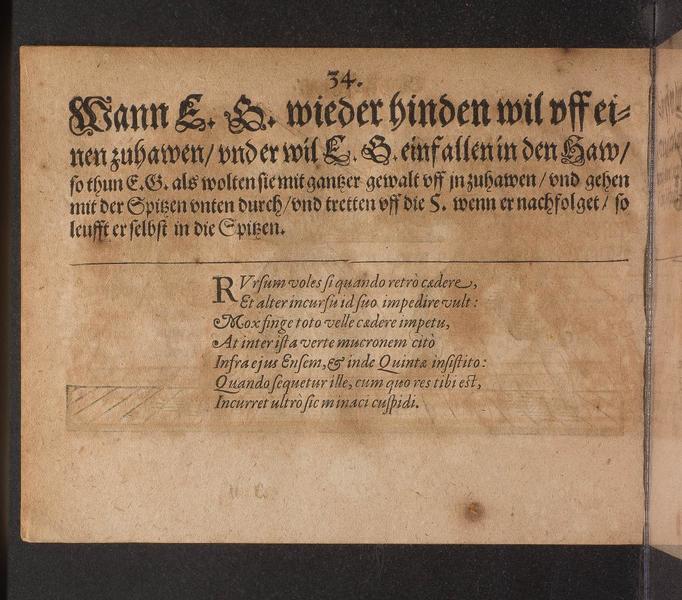 34.
Wann E. G. wieder hinden wil vff ei⸗
nen zuhawen/ vnd er wil E. G. einfallen in den Haw/
so thun E. G. als wolten sie mit gantzer gewalt vff jn zuhawen / vnd gehen
mit der Spitzen vnten durch/ vnd tretten vff die 5. wenn er nachfolget / so
leufft er selbst in die Spitzen.
RVrsum voles si quando retrò cædere,
Et alter incursu id suo impedire vult:
Mox finge toto velle cædere impetu,
At inter ista verte mucronem citò
Infra ejus Ensem, & inde Quintæ insistito:
Quando sequetur ille, cum quo res tibi est,
Incurret ultrò sic minaci cuspidi.